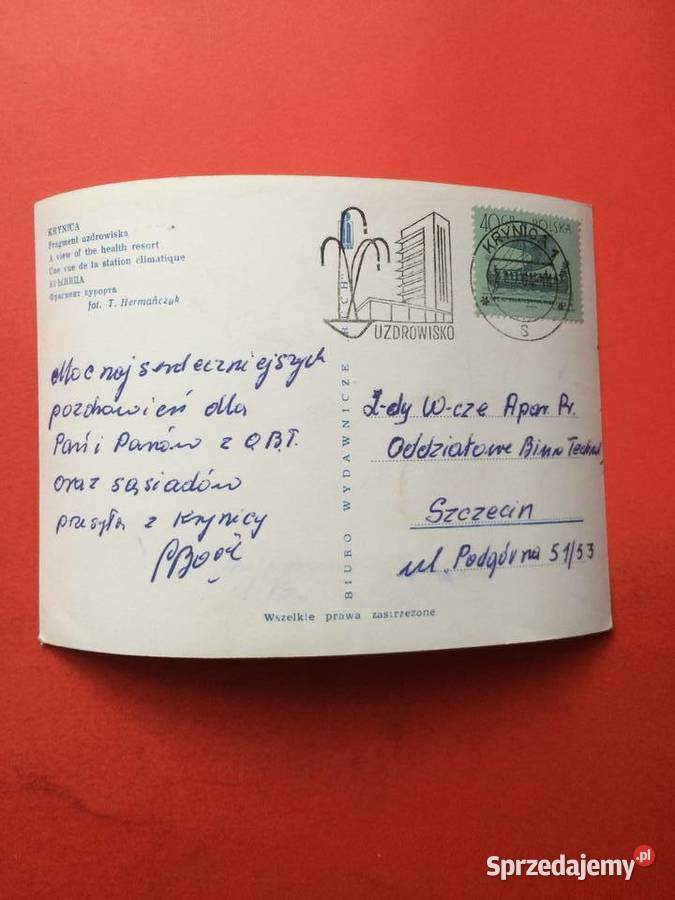 KRYNICA
Fragment uzdrowiska
A view of the health resort
Une vue de la station climatique
КРЫНИЦА
Фрагмент курорта
fot. T. Hermańczyk
UZDROWISKO
40 GR POLSKA
KRYNICA 1
s
Moc najserdeczniejszych
pozdrowień dla
Pań i Panów z O.B.T.
oraz sąsiadów
przesyła z Krynicy
BIURO WYDAWNICZE "RUCH"
Z-dy W-cze Apar. Pr.
Oddziałowe Biuro Techn.
Szczecin
ul. Podgórna 51/53
Wszelkie prawa zastrzeżone
Sprzedajemy.pl